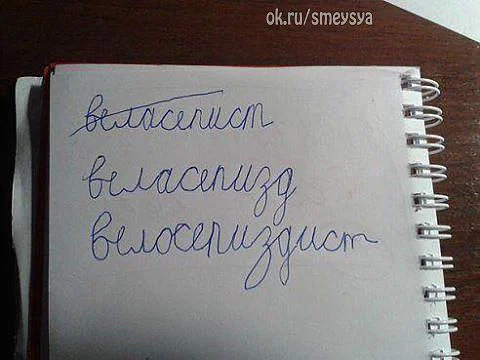 ok.ru/smeysya
веласепист
веласепизд
велосепиздист